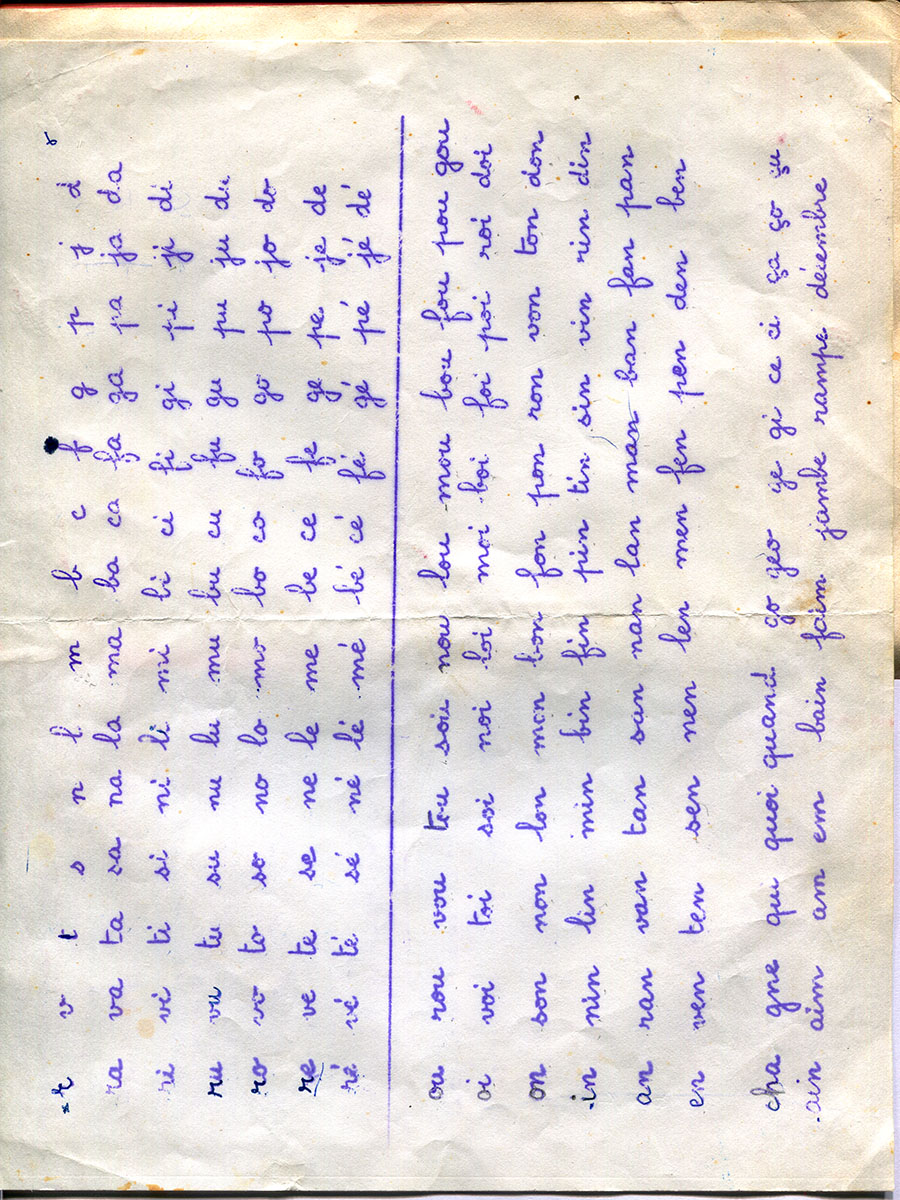 r v t s n l m b c f g p j d
ra va ta sa na la ma ba ca fa ga pa ja da
ri vi ti si ni li mi bi ci fi gi pi ji di
ru vu tu su nu lu mu bu cu fu gu pu ju du
ro vo to so no lo mo bo co fo go po jo do
re ve te se ne le me be ce fe ge pe je de
ré vé té sé né lé mé bé cé fé gé pé jé dé
ou rou vou tou sou nou lou mou bou fou pou gou
oi voi toi soi noi loi moi boi foi poi roi doi
on son non lon mon bon fon pon ron von ton don
in nin lin min bin fin pin tin sin vin rin din
an ran van tan san nan lan man ban fan pan
en ven ten sen nen len men fen pen den ben
cha gne qui quoi quand go geo ge gi ce ci ça ço çu
ain aim am em bain faim jambe rampe décembre